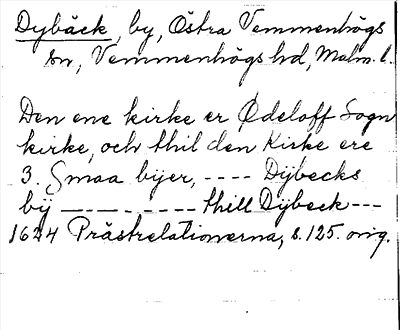 Dybäck, by, Östra Vemmenhögs
sn, Vemmenhögs hd, Malm. l.
Den ene kirke er Ødeloff Sogn
kirke, och thil den Kirke ere
3. Smaa bÿer, ---- Dÿbecks
bÿ --------- thill Dÿbeck ---
1624 Prästrelationerna, s. 125. orig.